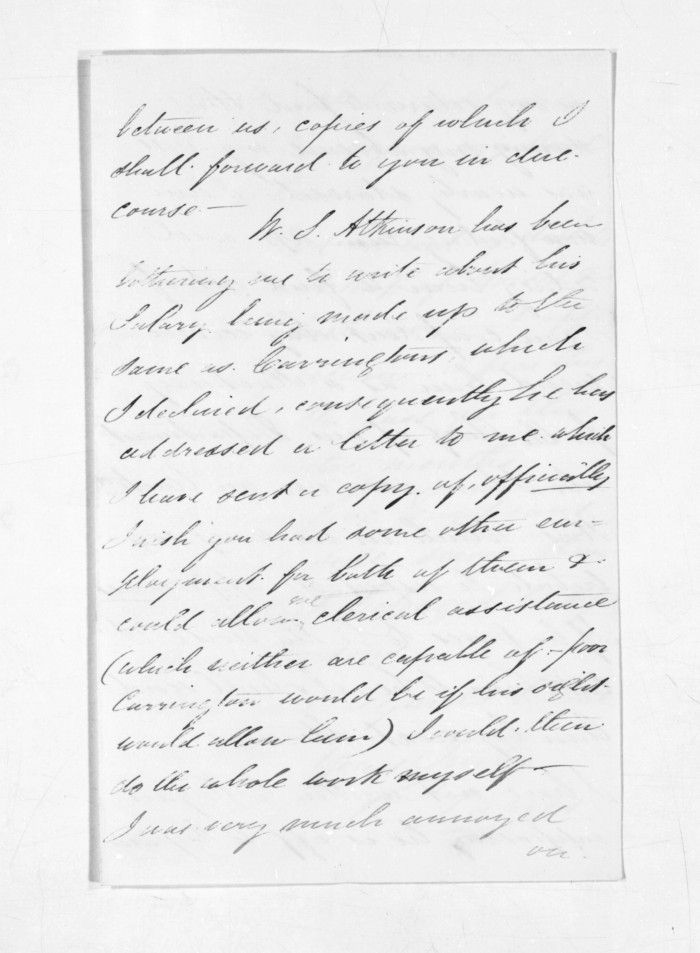 between us, copies of which I
shall forward to you in due
course —
W. S. Atkinson has been
bothering me to write about his
Salary being made up to the
same as Carringtons, which
I declined, consequently he has
addressed a letter to me which
I have sent a copy of, officially
I wish you had some other em-
ployment for both of them &
could allow me clerical assistance
(which neither are capable of - poor
Carrington would be if his sight
would allow him) I would then
do the whole work myself —
I was very much annoyed
on